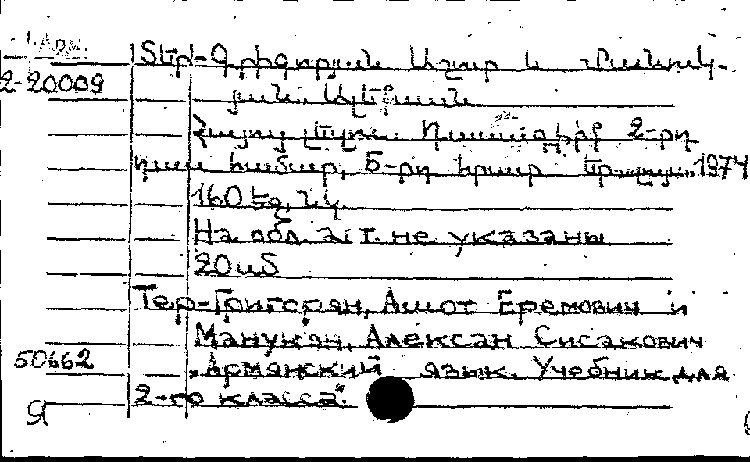 1. Арм.
Տեր-Գրիգորյան Աշոտ և Մանուկ-
2-20009
յան Ալեքսան
Հայոց լեզու. Դասագիրք 2-րդ
դաս համար, 5-րդ հրատ Երևան. 1974
160 էջ, նկ.
На обл. авт. не указаны
20 տճ
Тер-Григорян, Ашот Еремович и
Манукян, Алексан Сисакович
50662
"Армянский язык. Учебник для
2-го класса".
Я